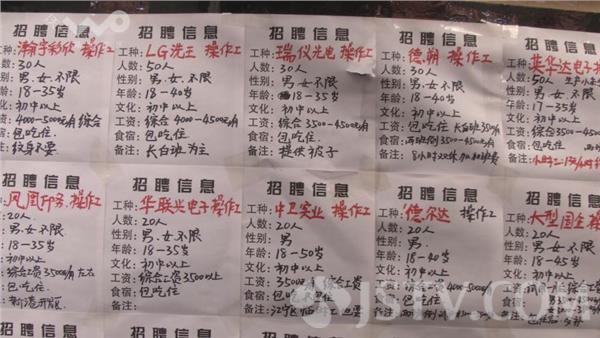 招聘信息
工种:瀚宇彩欣 操作工
人数:30人
性别:男.女不限
年龄:18-35岁
文化:初中以上
工资:4000-5000元/月综合
食宿:包吃住
备注:纹身不要
招聘信息
工种:LG洗王 操作工
人数:50人
性别:男.女不限
年龄:18-40岁
文化:初中以上
工资:综合 4000-4500元/月
食宿:包吃住.
备注:长白班为主
招聘信息
工种:瑞仪光电 操作工
人数:30人
性别:男.女不限
年龄:18-35岁
文化:初中以上
工资:综合3500-4500元/月
食宿:包吃住.
备注:提供被子
招聘信息
工种:德朔 操作工
人数:30人
性别:男.女不限
年龄:18-40岁
文化:初中以上
工资:包吃住 长白班3500元/月
食宿:两班倒3500-4500元/月
备注:8小时双休加班费
招聘信息
工种:英华达电子
人数:50人
性别:男女不限
年龄:17-35岁
文化:初中以上
工资:3500-4500元/月
食宿:包吃住.
备注:
招聘信息
凤凰印务.操作工
20人
男.女不限
18-35岁
初中以上
综合工资3500元/月左右
包吃住
新港开发区
招聘信息
工种:华联兴电子操作工
人数:20人
性别:男.女不限
年龄:18-35岁
文化:初中以上
工资:综合工资3500以上
食宿:包吃住
备注:
招聘信息
工种:中卫实业 操作工
人数:20人
性别:男
年龄:18-50岁
文化:初中以上
工资:3500
食宿:包吃住
备注:江宁区
招聘信息
工种:德尔达 操作工
人数:20人
性别:男.
年龄:18-40岁
文化:初中以上
工资:综合工资
食宿:
备注:
招聘信息
工种:大型国企操
人数:20人
性别:男女不限
年龄:18-45岁
文化:初中以上
工资:
食宿:
备注:
招聘信息
招聘信息
招聘信息
JSTV.COM